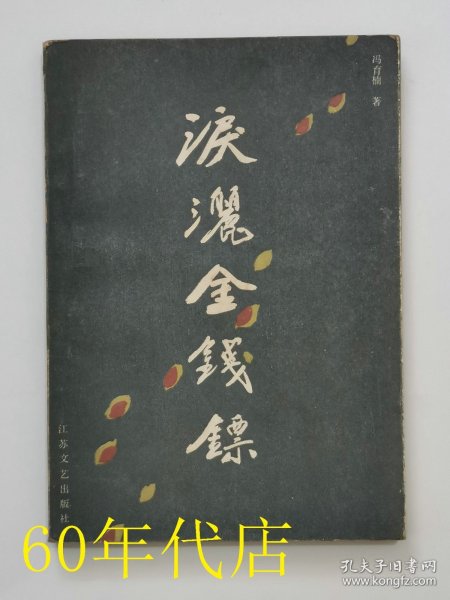 冯育楠 著
淚灑金錢鏢
江苏文艺出版社
60年代店
孔夫子旧书网
www.kongfz.com